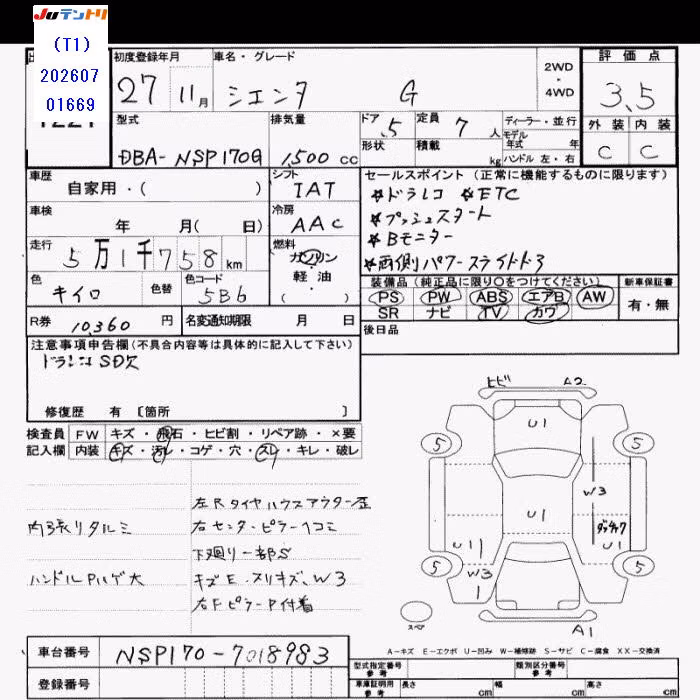 Juテントリ
(T1)
202607
01669
初度登録年月 車名・グレード 2WD・4WD 評価点
27 11月 シエンタ G 3.5
型式 排気量 ドア 定員 ディーラー・並行 外装 内装
DBA-NSP170G 1,500 cc 5 7人 モデル年式 年 C C
形状 積載 kg ハンドル 左・右
車歴 シフト セールスポイント (正常に機能するものに限ります)
自家用・( ) IAT ☆ドラレコ ☆ETC
車検 冷房 ☆プッシュスタート
年 月( 日) AAC ☆Bモニター
走行 燃料 ☆両側パワースライドドア
5万1千758km ガソリン
軽・油
( )
色 色替 色コード 装備品 (純正品に限り○をつけてください) 新車保証書
キイロ 5B6 PS PW ABS エアB AW 有・無
SR ナビ TV カワ
R券 10,360 円 名変通知期限 月 日 後日品
注意事項申告欄 (不具合内容等は具体的に記入して下さい)
ドラレコSD欠
修復歴 有 [箇所 ]
検査員 FW キズ・飛石・ヒビ割・リペア跡・×要
記入欄 内装 キズ・汚レ・コゲ・穴・スレ・キレ・破レ
ヒビ A2
U1
5 5
左Rタイヤハウスアウター歪
W3
内張りタルミ 右センターピラー凹コミ
U1 ダッチャク
下廻り一部S
U1 U1
ハンドルPハゲ大 キズE、スリキズ、W3
5 W3 5
1
右Fピラー P付着
スペア A1
A-キズ E-エクボ U-凹み W-補修跡 S-サビ C-腐食 XX-交換済
車台番号 NSP170-7018983
型式指定番号 参考 類別区分番号 参考
登録番号 車庫証明用 参考 長さ cm 幅 cm 高さ cm